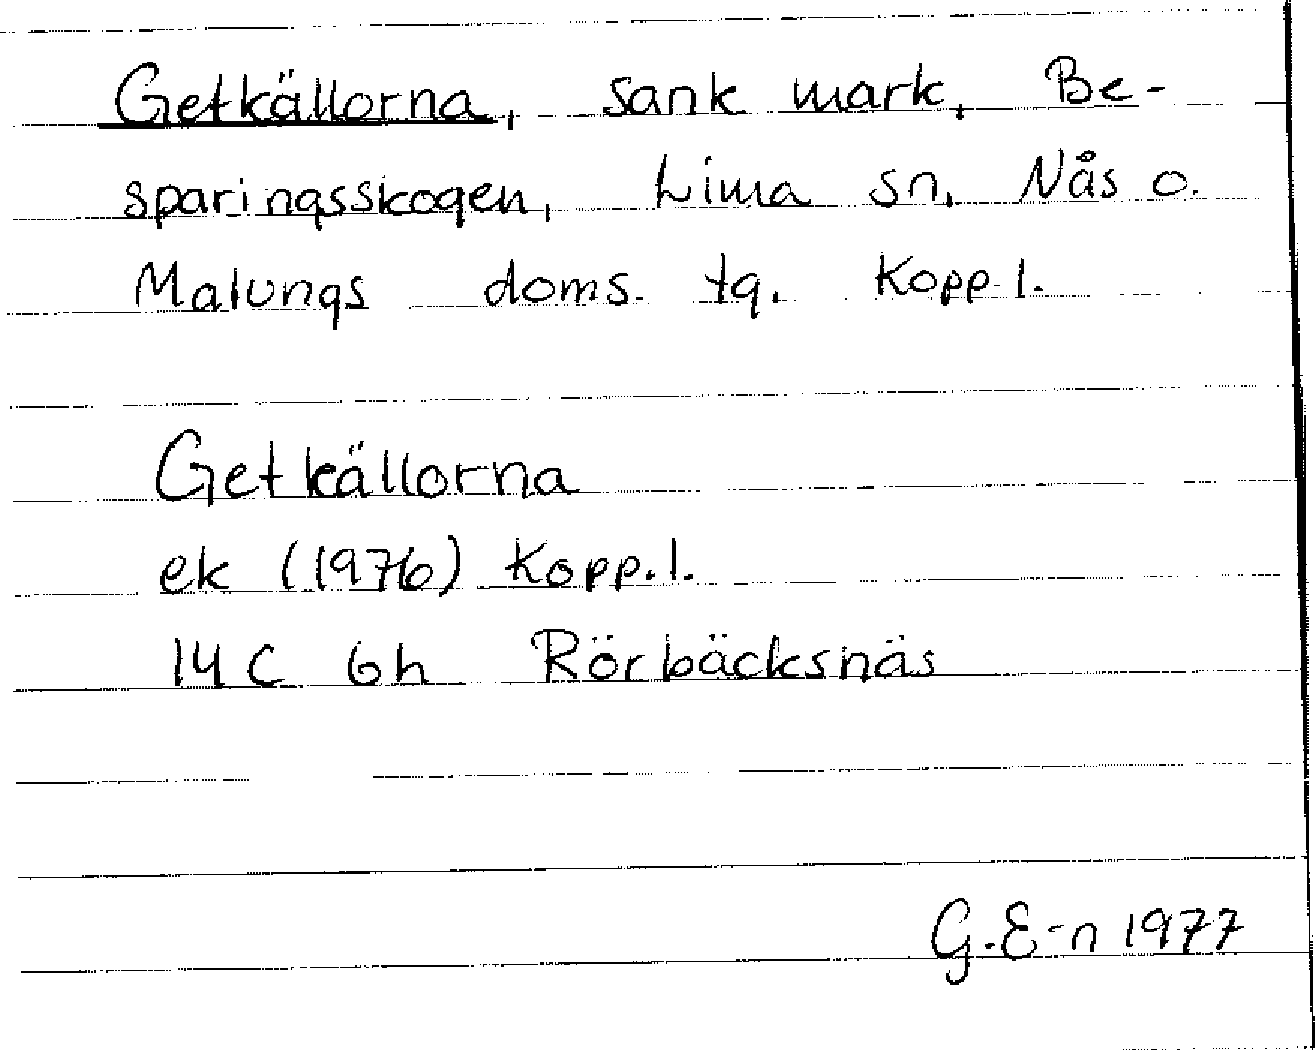 Getkällorna, sank mark, Be-
sparingsskogen, Lima sn, Nås o.
Malungs doms. tg. Kopp.l.
Getkällorna
ek (1976) Kopp.l.
14 C 6h Rörbäcksnäs
G.E-n 1977